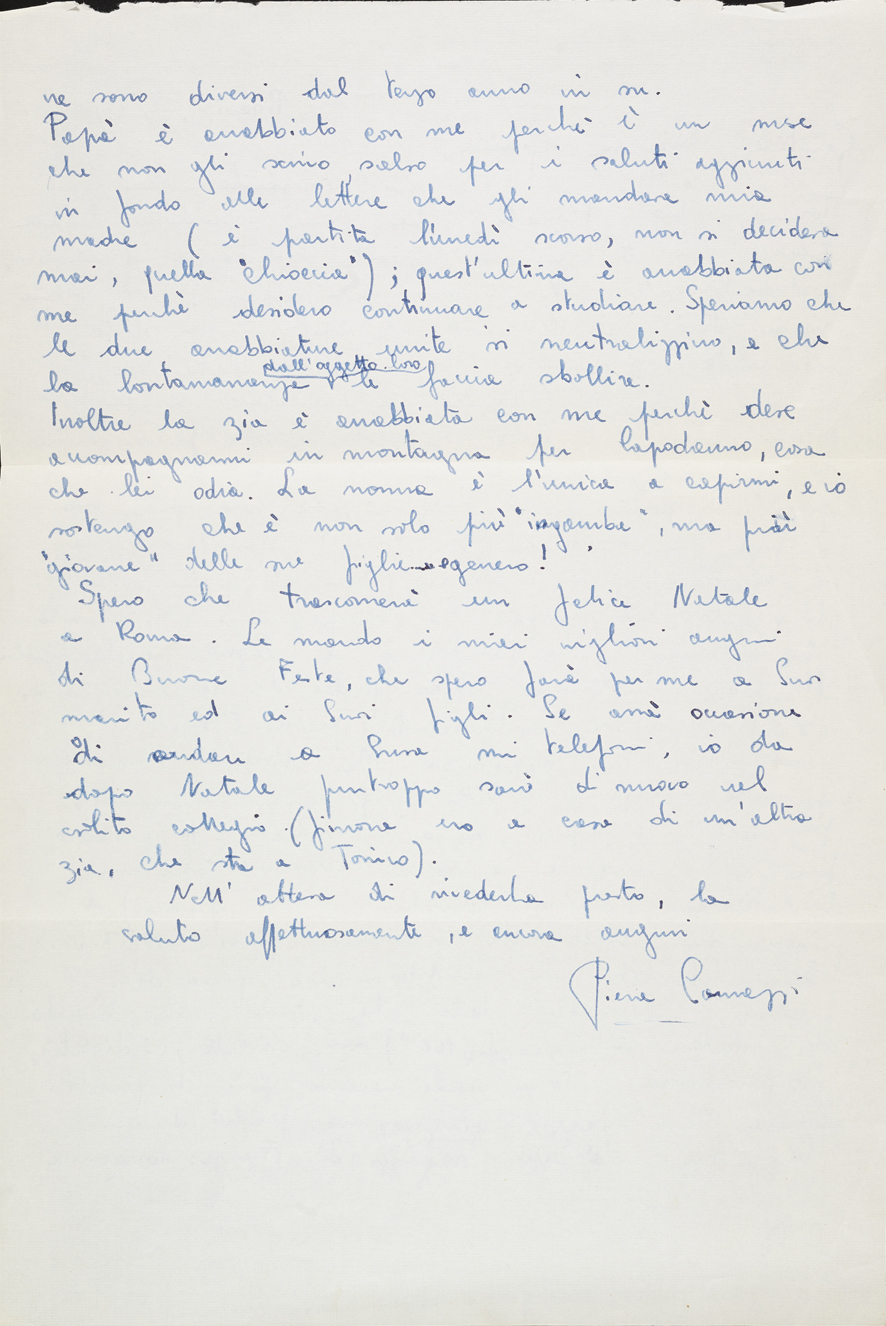 ne sono diversi dal terzo anno in su.
Papà è arrabbiato con me perchè è un mese
che non gli scrivo, salvo per i saluti aggiunti
in fondo alle lettere che gli mandava mia
madre ( è partita lunedì scorso, non si decideva
mai, quella "chioccia") ; quest'ultima è arrabbiata con
me perchè desidero continuare a studiare. Speriamo che
le due arrabbiature unite si neutralizzino, e che
dall'oggetto loro
la lontananza le faccia sbollire.
Inoltre la zia è arrabbiata con me perchè deve
accompagnarmi in montagna per Capodanno, cosa
che lei odia. La nonna è l'unica a capirmi, e io
sostengo che è non solo più "ingamba", ma più
"giovane" delle sue figlie e genero!
Spero che trascorrerà un felice Natale
a Roma. Le mando i miei migliori auguri
di Buone Feste, che spero farà per me a Suo
marito ed ai Suoi figli. Se avrà occasione
di andare a Susa mi telefoni, io da
dopo Natale purtroppo sarò di nuovo nel
solito collegio. (finora ero a casa di un'altra
zia, che sta a Torino).
Nell' attesa di rivederLa presto, la
saluto affettuosamente, e ancora auguri
Piera